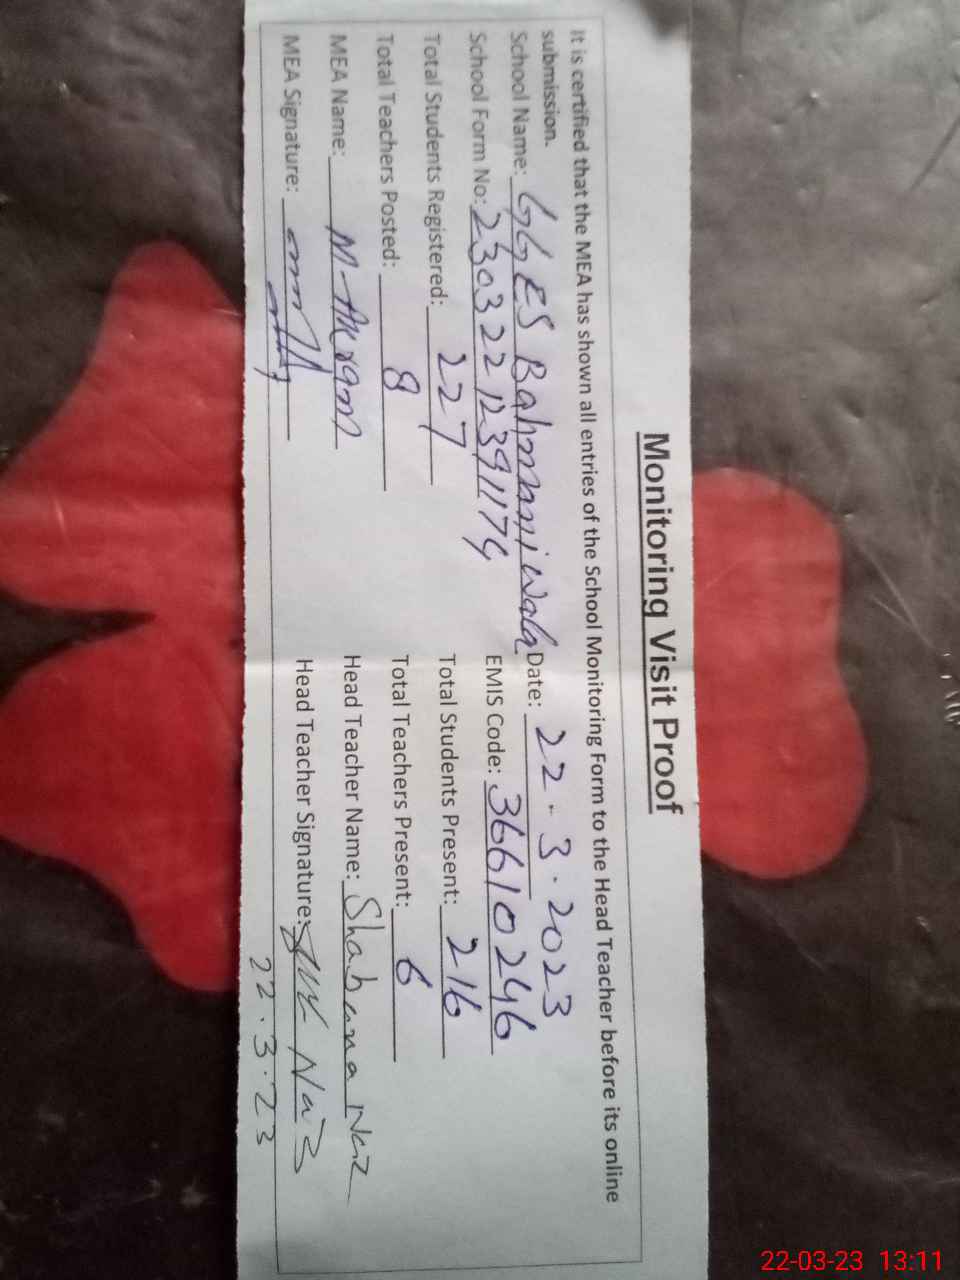 Monitoring Visit Proof
It is certified that the MEA has shown all entries of the School Monitoring Form to the Head Teacher before its online
submission.
School Name: GGES Bahmani Wala Date: 22-3-2023
School Form No: 23032212391174 EMIS Code: 36610246
Total Students Registered: 227 Total Students Present: 216
Total Teachers Posted: 8 Total Teachers Present: 6
MEA Name: M-Akram Head Teacher Name: Shabana Naz
MEA Signature: Head Teacher Signature: Naz
22.3.23
22-03-23 13:11